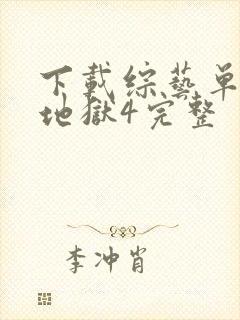 下載综藝单
地獄4完整
李冲肖